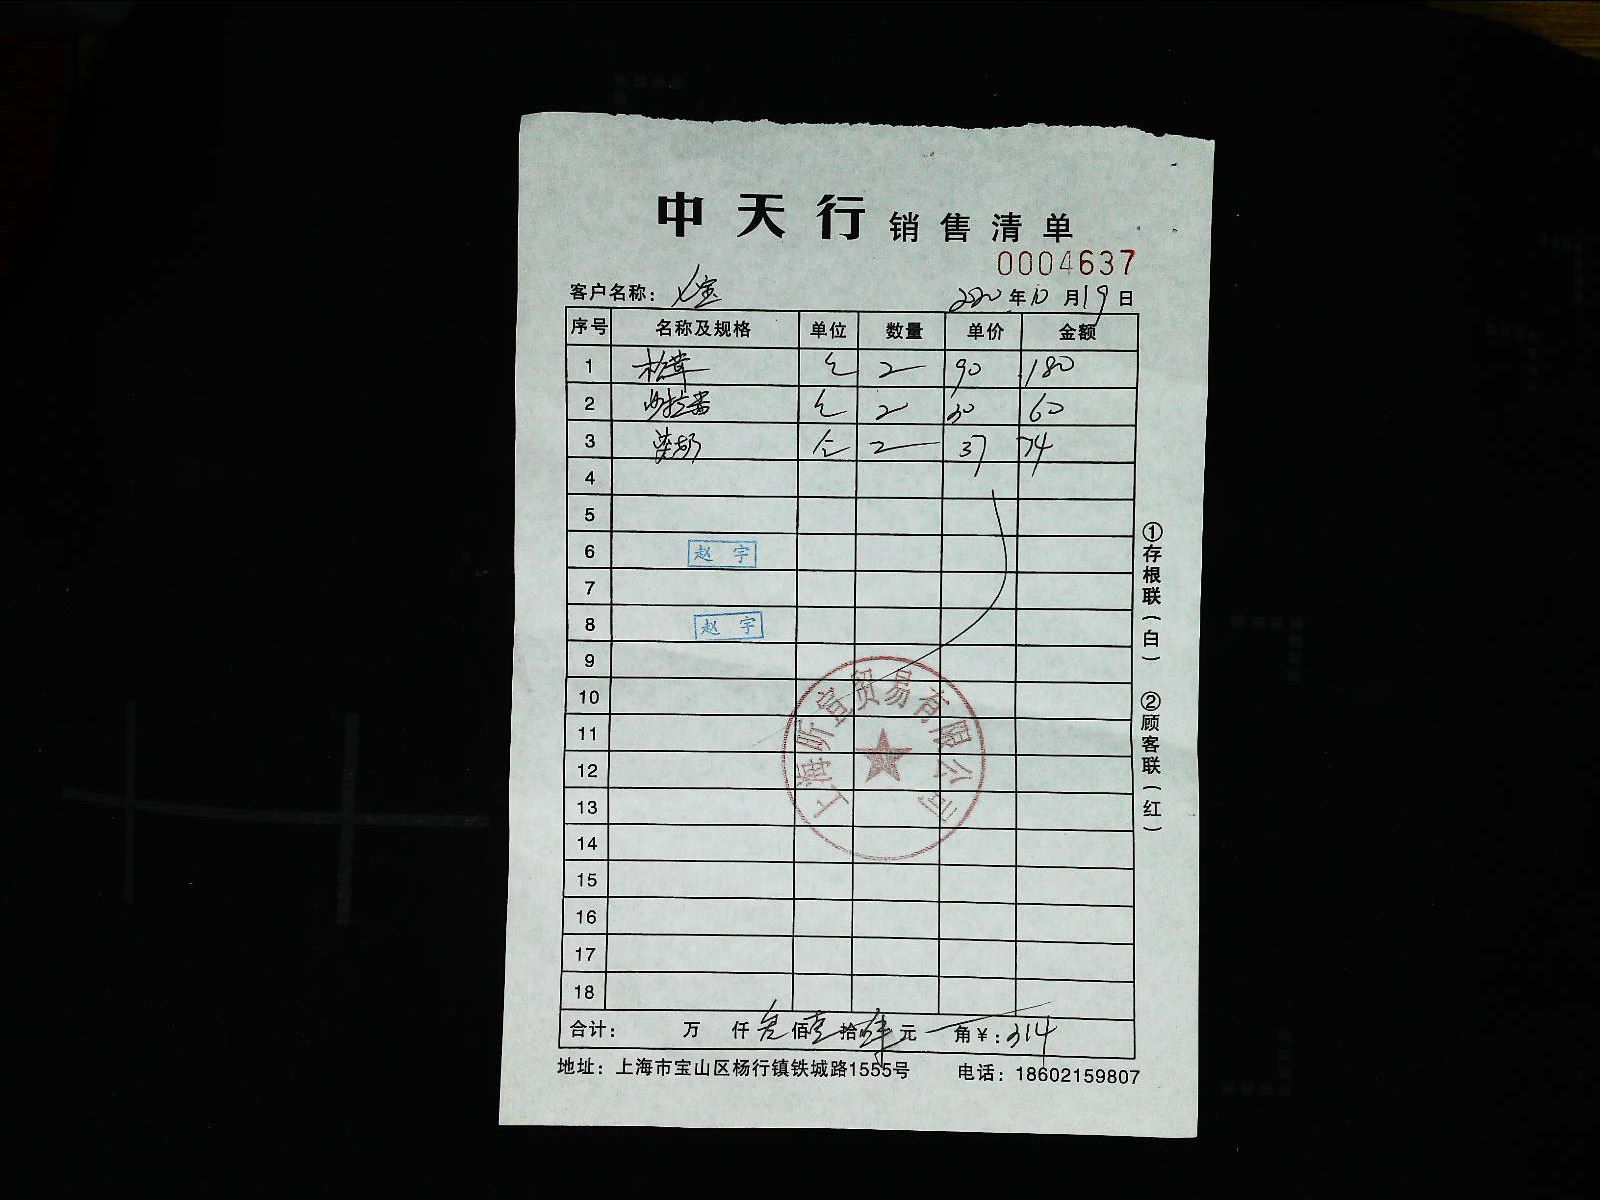 中天行 销售清单
0004637
客户名称： 宝 2020年10月19日
序号 名称及规格 单位 数量 单价 金额
1 松茸 2 90 180
2 沙拉酱 2 30 60
3 2 37 74
4
5
6 赵宇
7
8 赵宇
9
10
11
12
13
14
15
16
17
18
上海昕宜贸易有限公司
合计： 万 仟 叁佰壹拾肆元 角￥：314
地址：上海市宝山区杨行镇铁城路1555号 电话：18602159807
①存根联（白） ②顾客联（红）